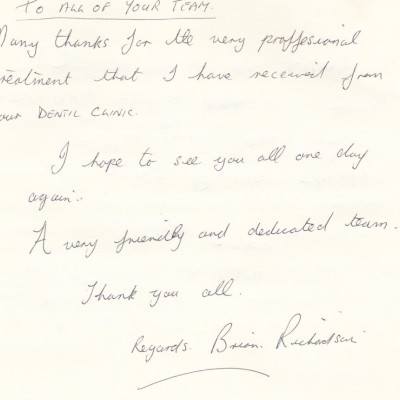 TO ALL OF YOUR TEAM.
Many thanks for the very proffesional
treatment that I have received from
your DENTIL CLINIC.
I hope to see you all one day
again.
A very friendly and dedicated team.
Thank you all.
Regards. Brian. Richardson